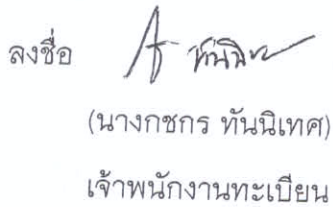 ลงชื่อ
(นางกชกร ทันนิเทศ)
เจ้าพนักงานทะเบียน